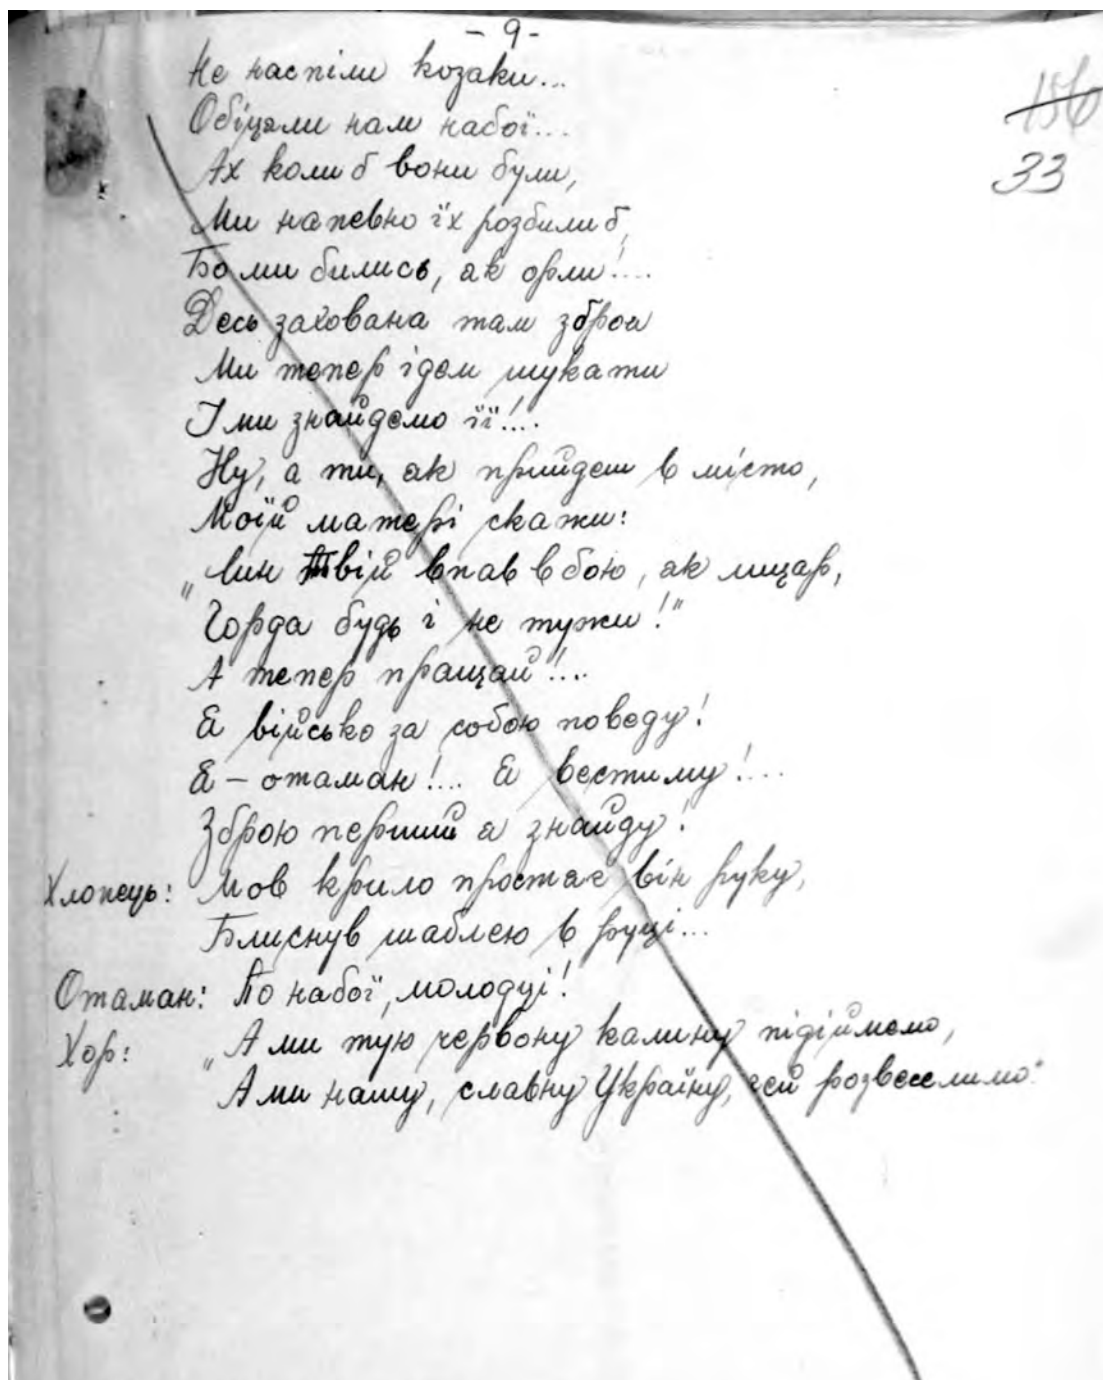 - 9 -
156
33
Не наспіли козаки...
Обіцяли нам набої...
Ах коли б вони були,
Ми напевно їх розбили б,
Бо ми бились, як орли!...
Десь захована там зброя
Ми тепер ідем шукати
І ми знайдемо її!...
Ну, а ти, як прийдеш в місто,
Моїй матері скажи:
„Син Твій впав в бою, як лицар,
Горда будь і не тужи!"
А тепер пращай!...
Я військо за собою поведу!
Я – отаман!... Я вестиму!...
Зброю перший я знайду!
Хлопець: Мов крило простяг він руку,
Блиснув шаблею в руці...
Отаман: По набої, молодці!
Хор: „А ми тую червону калину підіймемо,
А ми нашу, славну Україну, гей розвеселимо"